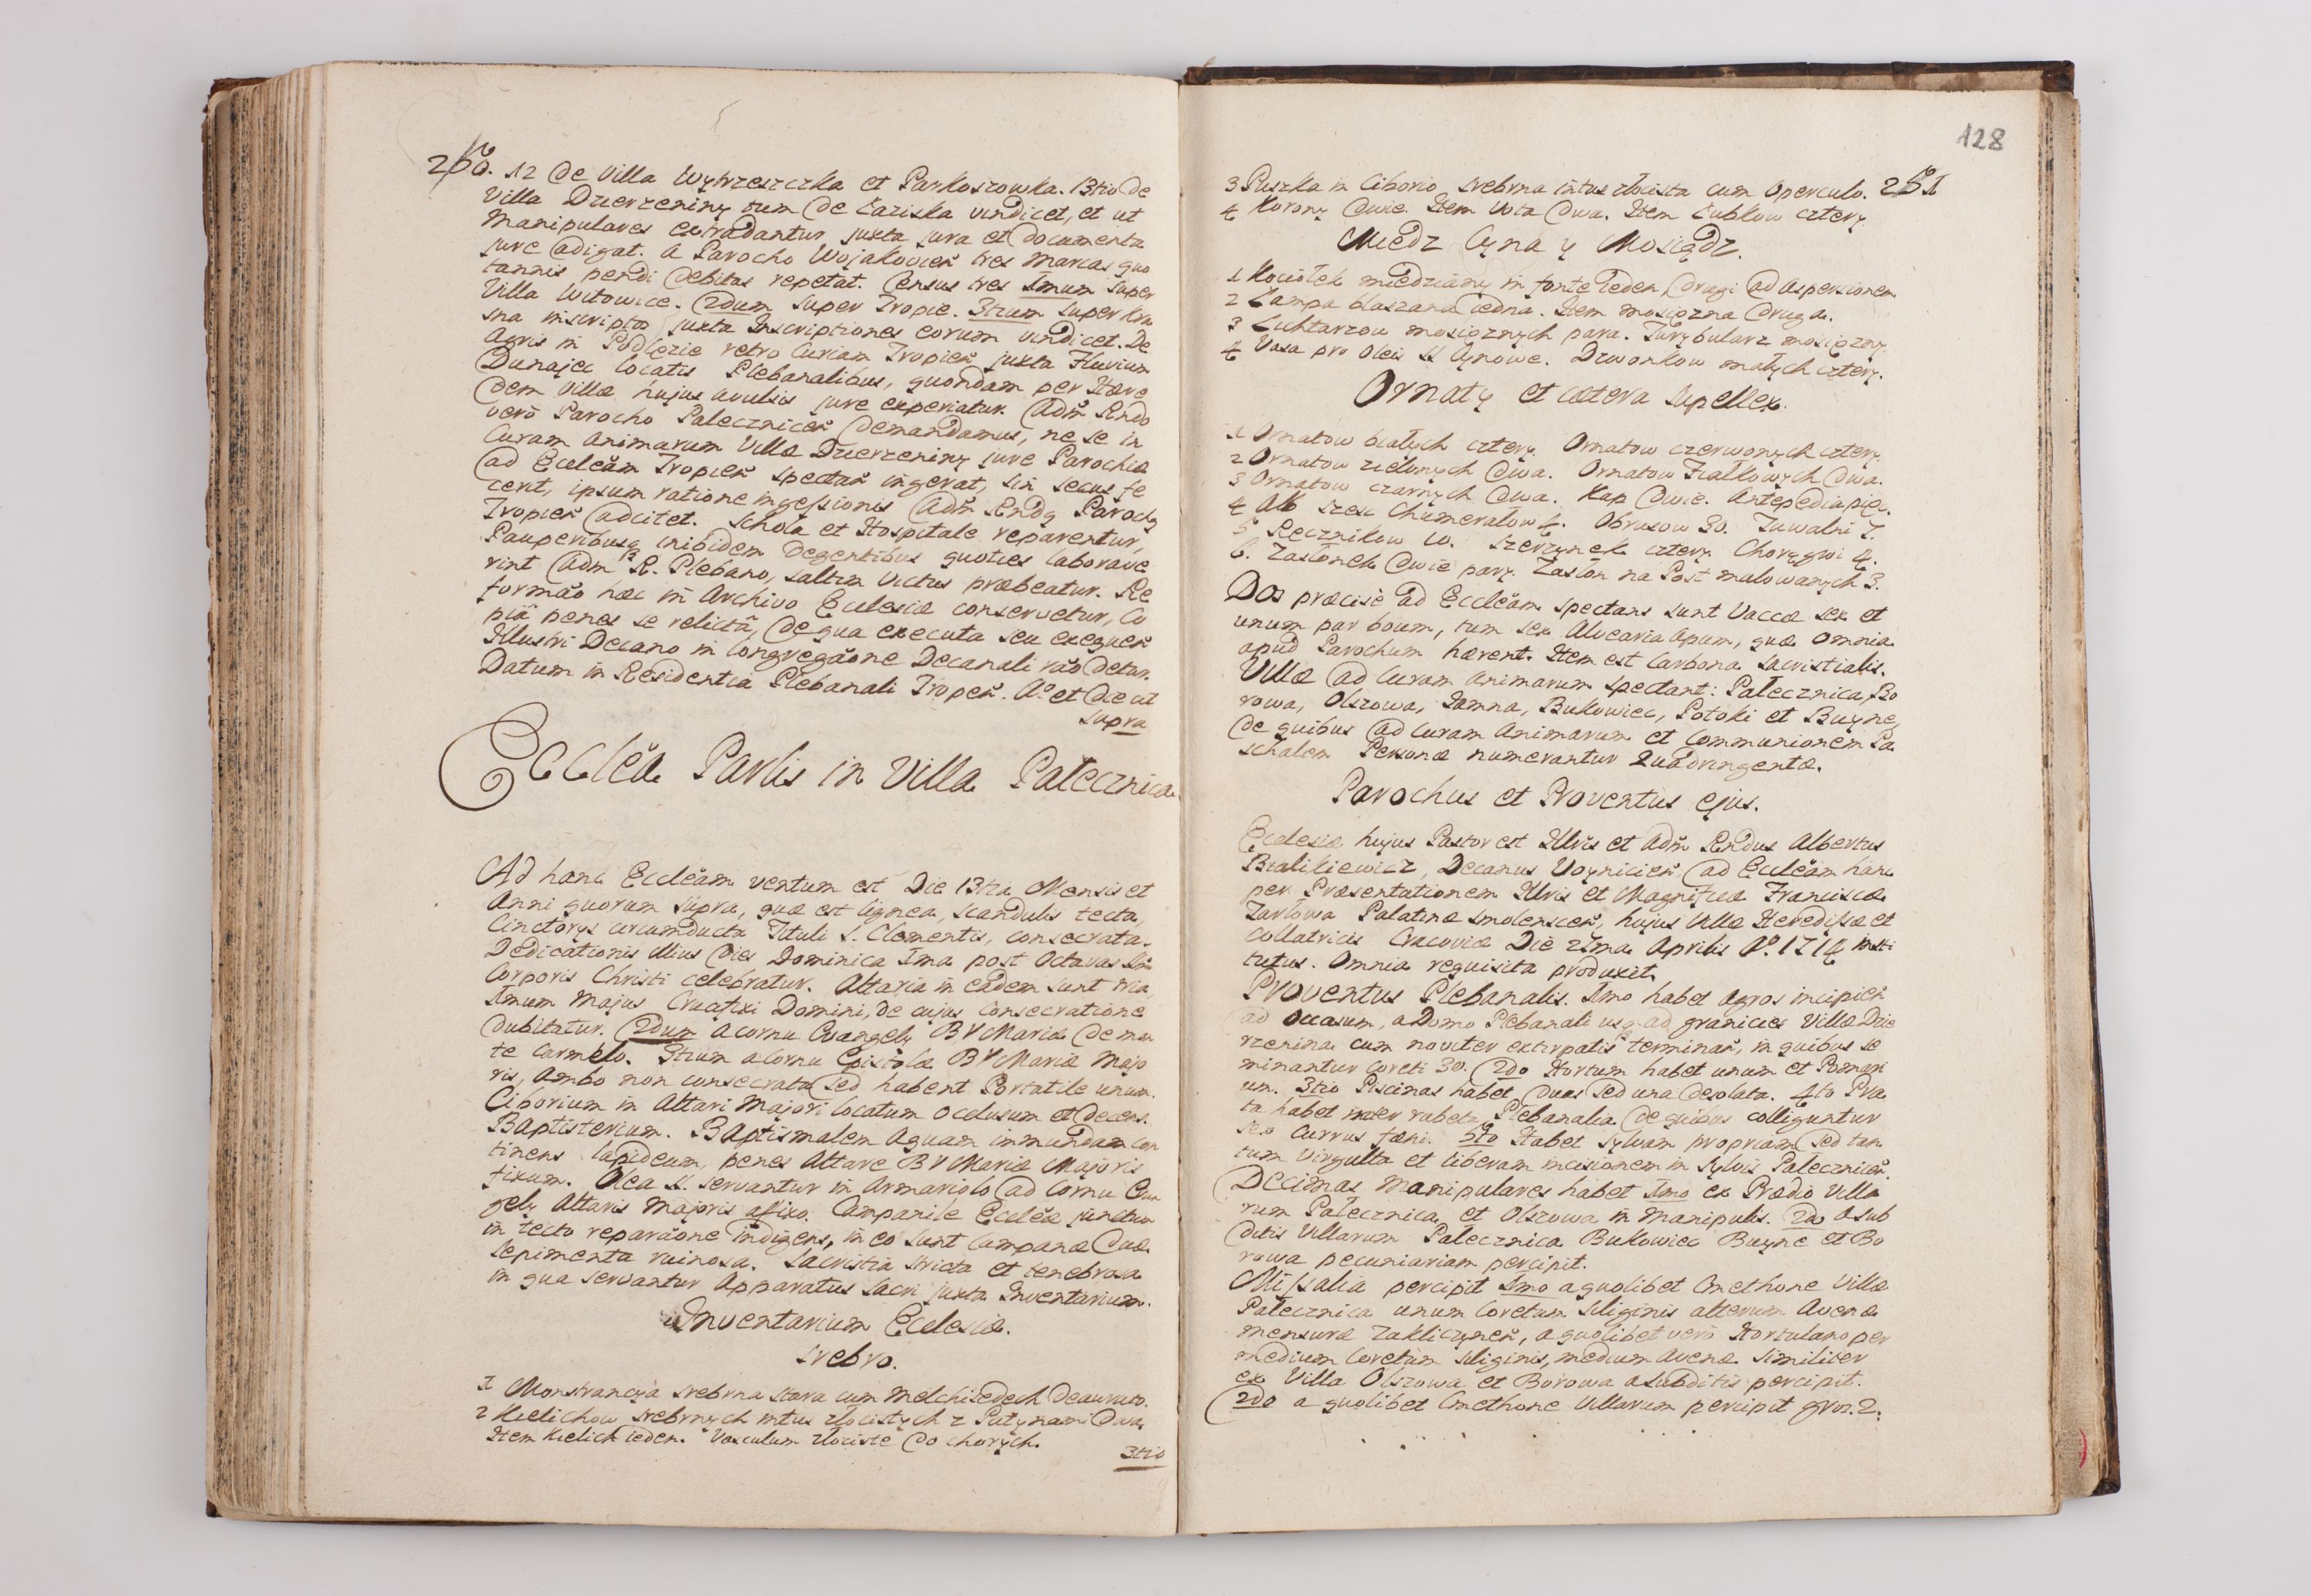 250. 12 de Villa Wytrzeszczka et Parkoszowka. 13tio de
Villa Dzierzeniny tum de Łaziska vindicet, et ut
Manipulares extradantur juxta jura et documenta
jure adigat. A Parocho Wojakovień tres Marcas quo
tannis pendi debitas repetat. Census tres 1mum super
Villa Witowice. 2dum super Tropie. 3tium super Kra
sna inscriptos juxta Inscriptiones eorum vindicet. De
Agris in Podlezie retro Curiam Tropień juxta Fluvium
Dunajec locatis Plebanalibus, quondam per Hære
dem Villæ hujus avulsis jure experiatur. Adm̃ Rndo
verò Parocho Palecznicień demandamus, ne se in
Curam Animarum Villæ Dzierzeniny jure Parochiæ
ad Eccleãm Tropień spectań ingerat, sin secus fe
cerit, ipsum ratione ingessionis Adm̃ Rndq Parochq
Tropień adcitet. Schola et Hospitale reparentur,
Pauperibusq inibidem degentibus quoties laborave
rint Adm R. Plebano, saltem victus præbeatur. Re
formão hæc in Archivo Ecclesiæ conservetur, Co
piã penes se relictã, de qua executa seu exequeń
Illustri Decano in Congregãone Decanali rão detur.
Datum in Residentia Plebanali Tropień. Aº et die ut
supra
Ecclẽa Parlis in Villa Palecznica
Ad hanc Eccleãm ventum est Die 13tia Mensis et
Anni quorum supra, quæ est lignea, scandulis tecta,
Cinctorys circumducta Tituli S. Clementis, consecrata.
Dedicationis illius dies Dominica 1ma post Octavas Ssmi
Corporis Christi celebratur. Altaria in eadem sunt tria,
1mum Majus Crucifixi Domini, de cujus Consecratione
dubitatur. 2dum a cornu Evangely B V Mariæ de mon
te Carmelo. 3tium a Cornu Epistolæ B V Mariæ Majo
ris, Ambo non consecrata sed habent Portatile unum.
Ciborium in Altari Majori locatum oclusum et decens.
Baptisterium. Baptismalem Aquam immundam con
tinens lapideum, penes Altare B V Mariæ Majoris
fixum. Olea S. servantur in Armariolo ad Cornu Evan
gely Altaris Majoris afixo. Campanile Ecclẽæ junctum
in tecto reparãone indigens, in eo sunt Campanæ duæ
Sepimenta ruinosa. Sacristia stricta et tenebrosa
in qua servantur Apparatus Sacri juxta Inventarium.
Inventarium Ecclesiæ.
Srebro.
1 Monstrancya srebrna stara cum Melchisedech deaurato.
2 Kielichow srebrnych intus złocistych z Patynami dwa.
Item Kielich ieden. Vasculum złociste do chorych.
3tio
128
3 Puszka in Ciborio srebrna intus złocista cum Operculo. 251
4 Korony dwie. Item Vota dwa. Item Łubkow cztery
Miedz Cyna y Mosiądz.
1 Kociołek miedziany in fonte ieden, drugi ad Aspersionem
2 Lampa blaszana iedna. Item mosiężna druga.
3 Lichtarzow mosiężnych para. Turybularz mosiężny
4 Vasa pro Oleis S. Cynowe. Dzwonkow małych cztery.
Ornaty et cætera supellex.
1 Ornatow białych cztery. Ornatow czerwonych cztery.
2 Ornatow zielonych dwa. Ornatow Fiałkowych dwa.
3 Ornatow czarnych dwa. Kap dwie. Antepedia pięc.
4 Alb szesc Chumerałow 4. Obrusow 30. Tuwalni 7.
5 Recznikow 10. Szerzynek cztery. Choręgwi 4.
6. Zasłonek dwie pary. Zasłon na Post malowanych 3.
Dos præcisè ad Eccleãm spectans sunt Vaccæ sex et
unum par boum, tum sex Alvearia Apum, quæ omnia
apud Parochum hærent. Item est Carbona Sacristialis.
Villæ ad Curam Animarum spectant: Palecznica, Bo
rowa, Olszowa, Jamna, Bukowiec, Potoki et Buyne,
de quibus ad Curam Animarum et Communionem Pa
schalem Personæ numerantur Quadringentæ.
Parochus et Proventus ejus.
Ecclesiæ hujus Pastor est Illris et Adm̃ Rndus Albertus
Bialikiewicz, Decanus Voynicień, ad Eccleãm hanc
per Præsentationem Illris et Magnificæ Franciscæ
Tarłowa Palatinæ Smolensceń, hujus Villæ Heredissæ et
collatricis Cracoviæ Die 21ma Aprilis Aº. 1714 insti
tutus. Omnia requisita produxit.
Proventus Plebanalis. 1mo habet Agros incipień
ad Occasum, a Domo Plebanali usq ad granicies Villæ Dzie
rzenina cum noviter extirpatis terminań, in quibus se
minantur Coreti 30. 2do Hortum habet unum et Pomari
um. 3tio Piscinas habet duas sed una desolata. 4to Pra
ta habet inter rubeta Plebanalia de quibus colliguntur
sex Currus fæni. 5to Habet sylvam propriam sed tan
tum Virgulta et liberam incisionem in sylvis Palecznicień.
Decimas Manipulares habet 1mo ex Prædio Villa
rum Palecznica et Olszowa in Manipulis. 2do a sub
ditis Villarum Palecznica Bukowiec Buyne et Bo
rowa pecuniariam percipit.
Missalia percipit 1mo a quolibet Cmethone Villæ
Palecznica unum Coretum Siliginis alterum Avenæ
mensuræ Zakliczyneń, a quolibet verò Hortulano per
medium Coretum siliginis, medium Avenæ similiter
ex Villa Olszowa et Borowa a subditis percipit.
2do a quolibet Cmethone Villarum percipit gros. 2.